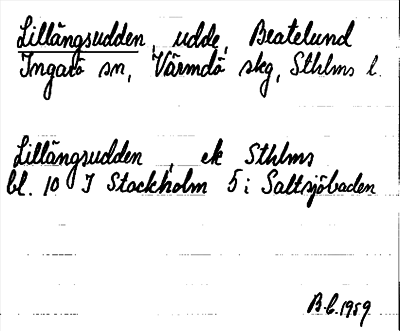 Lillängsudden, udde, Beatelund
Ingarö sn, Värmdö skg, Sthlms l.
Lillängsudden, ek Sthlms
bl. 10 I Stockholm 5 i Saltsjöbaden
B.C. 1959